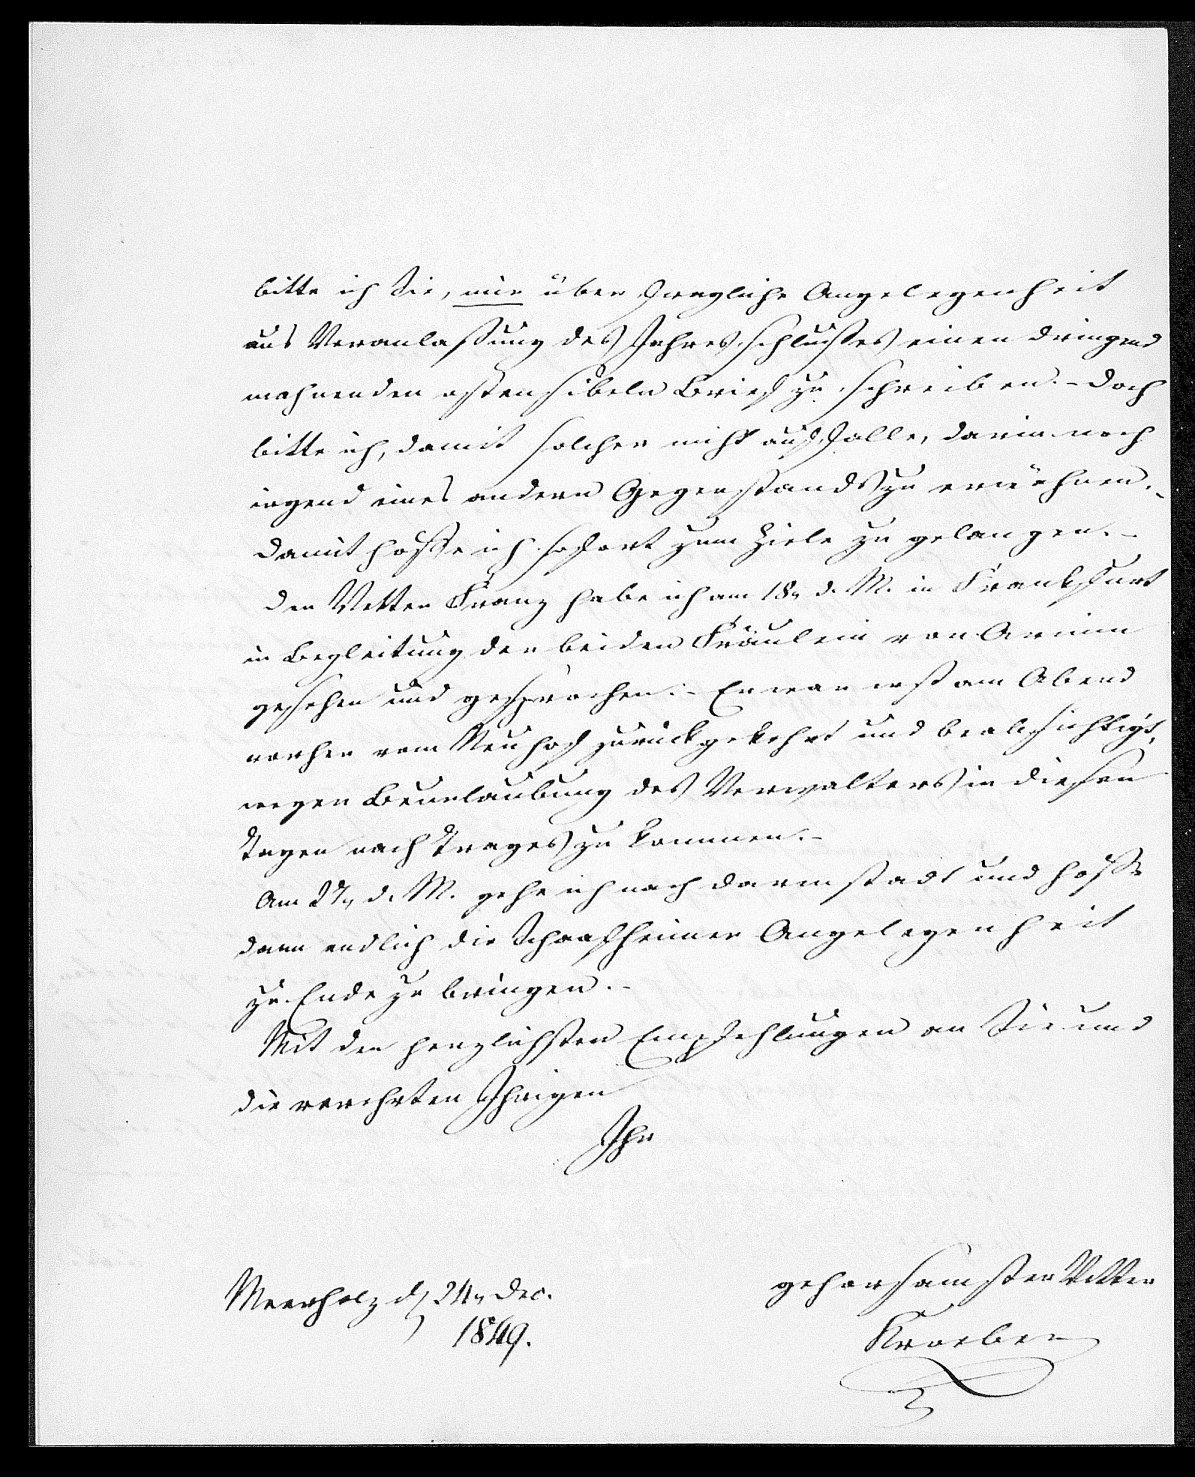 bitte ich Sie, mir über fragliche Angelegenheit
aus Veranlassung des Jahresschlusses einen dringend
mahnenden ostensibeln Brief zu schreiben. – Doch
bitte ich, damit solcher nicht auffalle, darin noch
irgend eines andern Gegenstands zu erwähnen. –
Damit hoffe ich sofort zum Ziele zu gelangen. –
Den Vetter Franz habe ich am 18n d. M. in Frankfurt
in Begleitung der beiden Fräulein von Arnim
gesehen und gesprochen. – Er war erst am Abend
vorher vom Neuhof zurückgekehrt und beabsichtigt,
wegen Beurlaubung des Verwalters in diesen
Tagen nach Trages zu kommen. –
Am 27n d. M. gehe ich nach Darmstadt und hoffe
dann endlich die Schaafheimer Angelegenheit
zu Ende zu bringen. –
Mit den herzlichsten Empfehlungen an Sie und
die verehrten Ihrigen
Ihr
gehorsamster Vetter
Kroeber
Meerholz d 24n Dec.
1849.